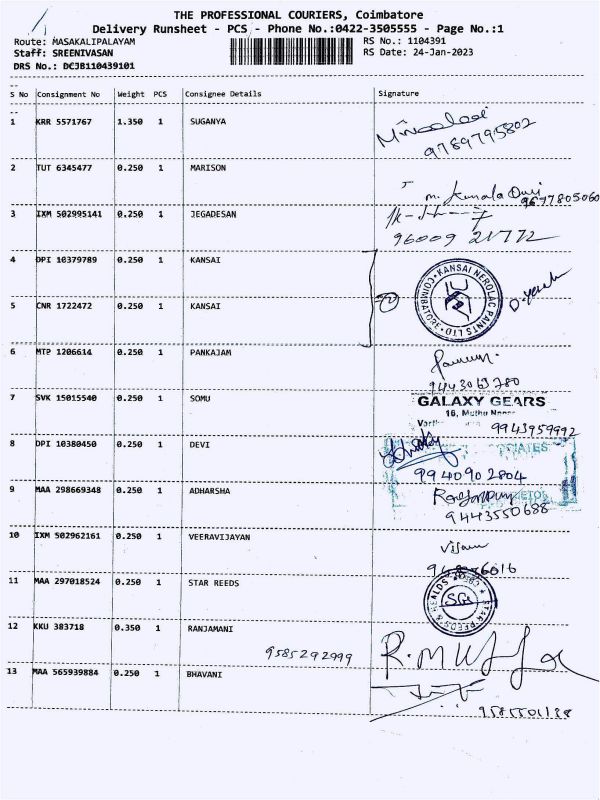 THE PROFESSIONAL COURIERS, Coimbatore
Delivery Runsheet - PCS - Phone No.:0422-3505555 - Page No.:1
Route: MASAKALIPALAYAM RS No.: 1104391
Staff: SREENIVASAN RS Date: 24-Jan-2023
DRS No.: DCJB110439101
S No Consignment No Weight PCS Consignee Details Signature
1 KRR 5571767 1.350 1 SUGANYA
9789795802
2 TUT 6345477 0.250 1 MARISON
9677805060
3 IXM 502995141 0.250 1 JEGADESAN
96009 21772
4 DPI 10379789 0.250 1 KANSAI
KANSAI NEROLAC PAINTS LTD COIMBATORE
5 CNR 1722472 0.250 1 KANSAI
2
6 MTP 1206614 0.250 1 PANKAJAM
9443063780
7 SVK 15015540 0.250 1 SOMU
GALAXY GEARS
16, Muthu
9943959992
8 DPI 10380450 0.250 1 DEVI
9940902804
9 MAA 298669348 0.250 1 ADHARSHA
9443550688
10 IXM 502962161 0.250 1 VEERAVIJAYAN
11 MAA 297018524 0.250 1 STAR REEDS
STAR REEDS &
12 KKU 383718 0.350 1 RANJAMANI
9585292999
13 MAA 565939884 0.250 1 BHAVANI